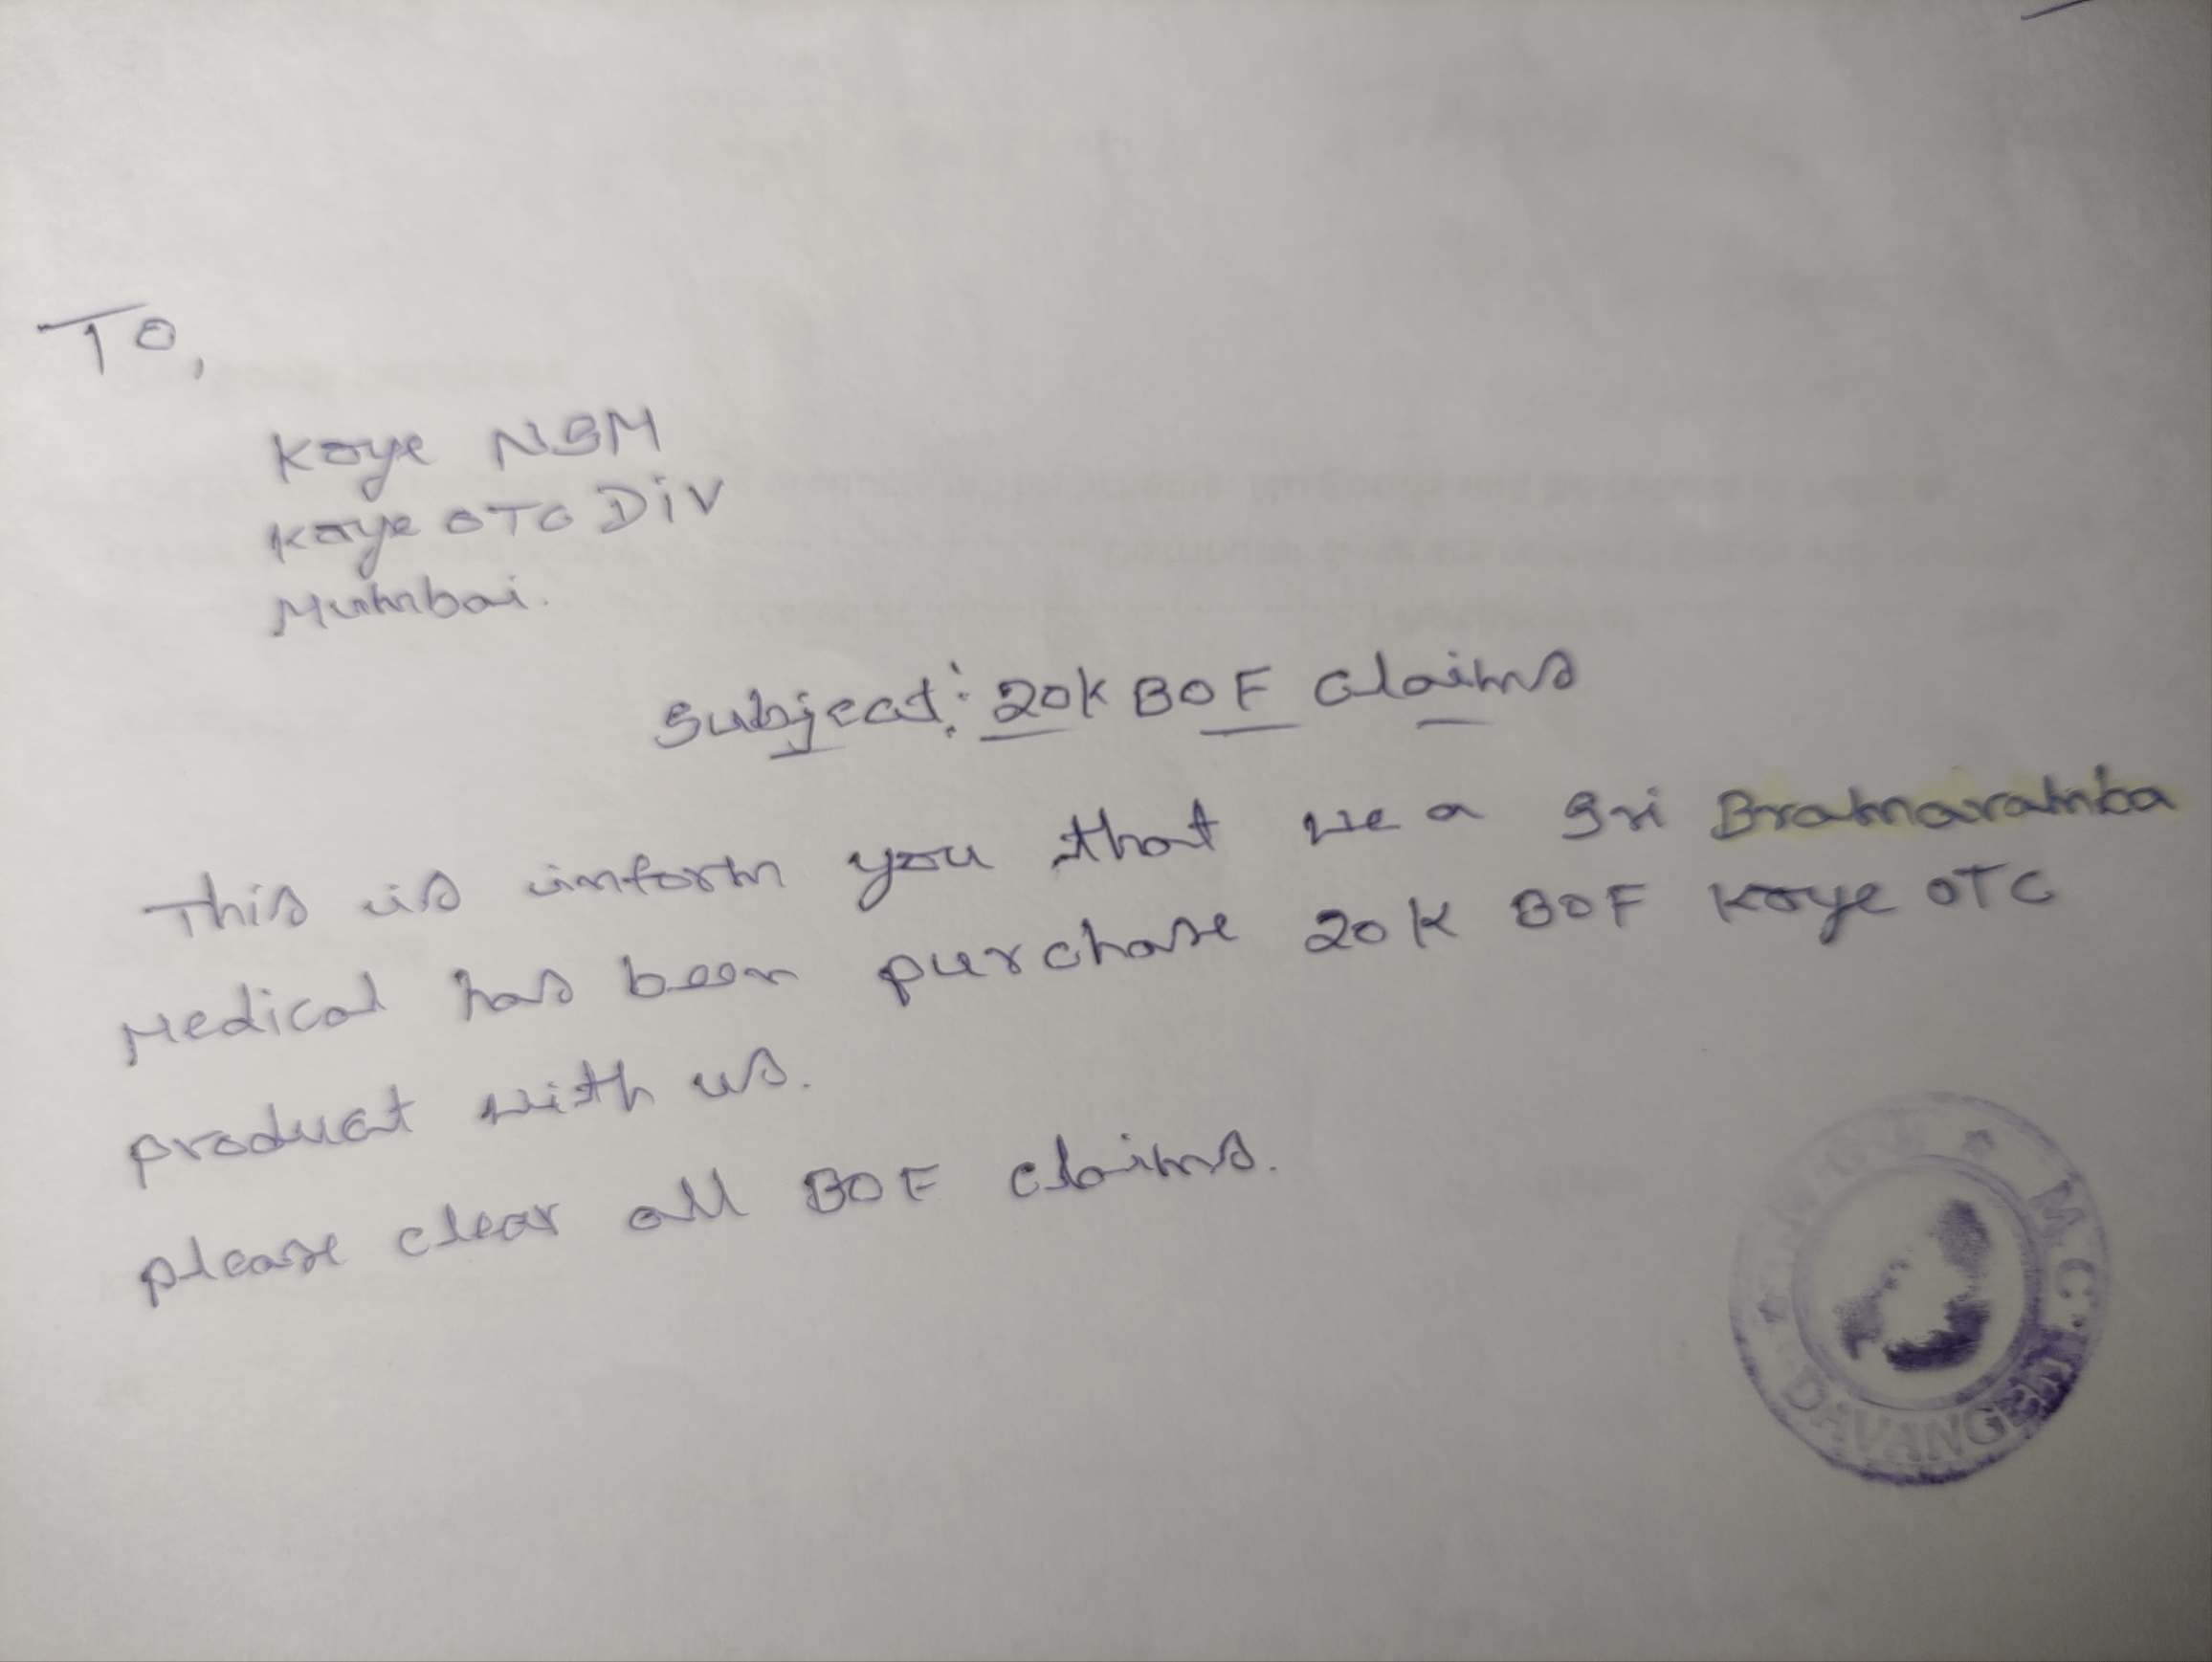 To,
Koye NSM
Koye OTC Div
Mumbai.
Subject: 20K BOF Claims
This is inform you that we a Sri Bramaramba
Medical has been purchase 20K BOF Koye OTC
product with us.
please clear all BOF claims.
M.C.
DAVANGERE